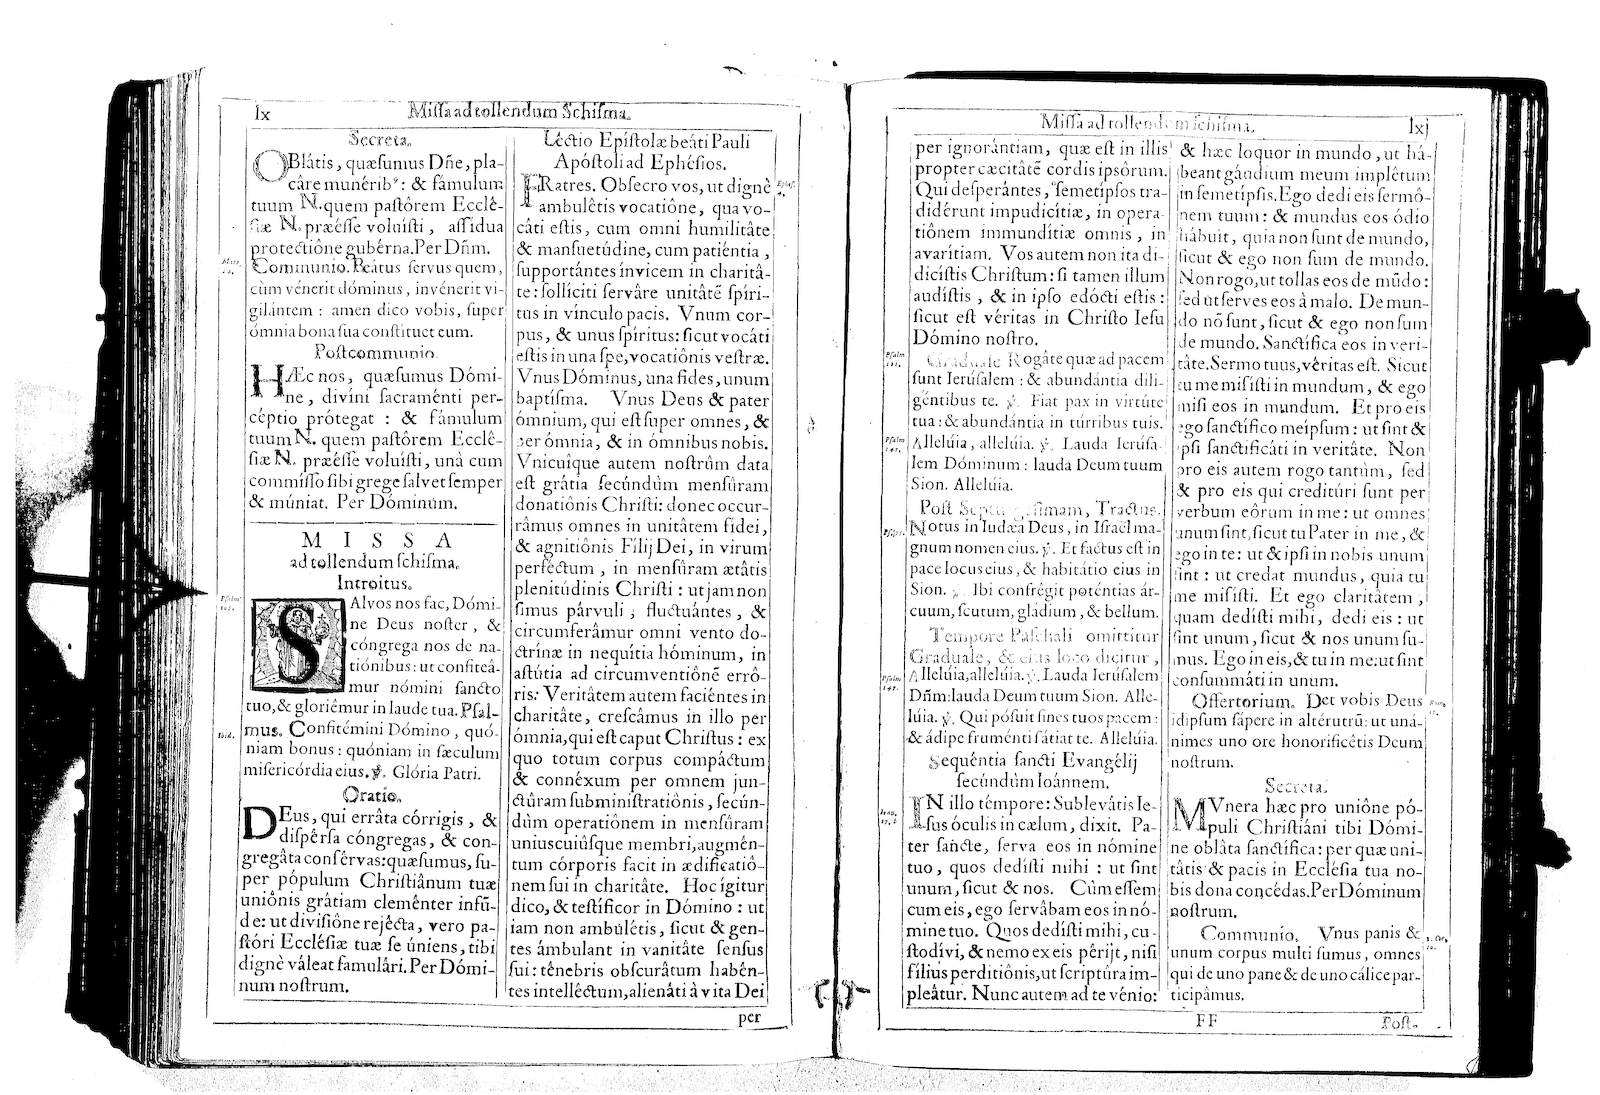 lx
Miſſa ad tollendum Schiſma.
Secreta.
OBlátis, quæſumus Dñe, pla-
câre munérib⁹: & fámulum
tuum N. quem paſtôrem Ecclê-
ſiæ N. præéſſe voluíſti, aſſídua
protectiône gubérna. Per Dñm.
Communio. Beátus ſervus quem,
cùm vénerit dóminus, invénerit vi-
gilántem : amen dico vobis, ſuper
ómnia bona ſua conſtituet eum.
Poſtcommunio.
HÆc nos, quæſumus Dómi-
ne, divíni ſacraménti per-
céptio prótegat : & fámulum
tuum N. quem paſtôrem Ecclê-
ſiæ N. præéſſe voluíſti, unà cum
commíſſo ſibi grege ſalvet ſemper
& múniat. Per Dóminum.
MISSA
ad tollendum ſchiſma.
Introitus.
Pſalm
105.
SAlvos nos fac, Dómi-
ne Deus noſter, &
cóngrega nos de na-
tiónibus: ut confiteâ-
mur nómini ſancto
tuo, & gloriémur in laude tua. Pſal-
mus. Confitémini Dómino, quó-
niam bonus : quóniam in ſæculum
miſericórdia eius. ℣. Glória Patri.
Ibid.
Oratio.
DEus, qui errâta córrigis, &
diſpérſa cóngregas, & con-
gregâta conſérvas: quæſumus, ſu-
per pópulum Chriſtiânum tuæ
uniônis grâtiam cleménter infū-
de: ut diviſiône rejécta, vero pa-
ſtóri Eccléſiæ tuæ ſe úniens, tibi
dignè váleat famulári. Per Dómi-
num noſtrum.
Léctio Epíſtolæ beáti Pauli
Apóſtoli ad Ephéſios.
FRatres. Obſecro vos, ut dignè
ambulêtis vocatiône, qua vo-
cáti eſtis, cum omni humilitâte
& manſuetúdine, cum patiéntia,
ſupportántes ínvicem in charitâ-
te: ſollíciti ſervâre unitâtē ſpíri-
tus in vínculo pacis. Vnum cor-
pus, & unus ſpíritus: ſicut vocáti
eſtis in una ſpe, vocatiônis veſtræ.
Vnus Dóminus, una fides, unum
baptíſma. Vnus Deus & pater
ómnium, qui eſt ſuper omnes, &
per ómnia, & in ómnibus nobis.
Vnicuîque autem noſtrûm data
eſt grâtia ſecúndùm menſûram
donatiônis Chriſti: donec occur-
râmus omnes in unitâtem fidei,
& agnitiônis Fílij Dei, in virum
perféctum, in menſûram ætâtis
plenitúdinis Chriſti : ut jam non
ſimus párvuli, fluctuántes, &
circumferâmur omni vento do-
ctrínæ in nequítia hóminum, in
aſtútia ad circumventiônē errô-
ris: Veritâtem autem faciéntes in
charitâte, creſcâmus in illo per
ómnia, qui eſt caput Chriſtus : ex
quo totum corpus compáctum
& connéxum per omnem jun-
ctûram ſubminiſtratiônis, ſecún-
dùm operatiônem in menſûram
uniuscuiûſque membri, augmén-
tum córporis facit in ædificatiô-
nem ſui in charitâte. Hoc ígitur
dico, & teſtíficor in Dómino : ut
iam non ambulétis, ſicut & gen-
tes ámbulant in vanitâte ſenſus
ſui : ténebris obſcurâtum habén-
tes intelléctum, alienáti à vita Dei
per
Miſſa ad tollendum ſchiſma.
lxj
per ignorántiam, quæ eſt in illis
propter cæcitâtē cordis ipsôrum.
Qui deſperántes, ſemetípſos tra-
didérunt impudicítiæ, in opera-
tiônem immundítiæ omnis, in
avarítiam. Vos autem non ita di-
dicíſtis Chriſtum: ſi tamen illum
audíſtis, & in ipſo edócti eſtis :
ſicut eſt véritas in Chriſto Ieſu
Dómino noſtro.
Pſalm
121.
Graduale Rogâte quæ ad pacem
ſunt Ierúſalem : & abundántia dili-
géntibus te. ℣. Fiat pax in virtúte
tua : & abundántia in túrribus tuis.
Pſalm
147.
Allelúia, allelúia. ℣. Lauda Ierúſa-
lem Dóminum : lauda Deum tuum
Sion. Allelúia.
Poſt Septuageſimam, Tractus.
Notus in Iudæa Deus, in Iſraël ma-
gnum nomen eius. ℣. Et factus eſt in
pace locus eius, & habitátio eius in
Sion. ℣. Ibi confrêgit poténtias ár-
cuum, ſcutum, gládium, & bellum.
Tempore Paſchali omittitur
Graduale, & eius loco dicitur,
Pſalm
147.
Allelúia, allelúia. ℣. Lauda Ierúſalem
Dñm: lauda Deum tuum Sion. Alle-
lúia. ℣. Qui póſuit fines tuos pacem :
& ádipe fruménti ſátiat te. Allelúia.
Sequéntia ſancti Evangélij
ſecúndùm Ioánnem.
IN illo témpore: Sublevâtis Ie-
ſus óculis in cælum, dixit. Pa-
ter ſancte, ſerva eos in nómine
tuo, quos dedíſti mihi : ut ſint
unum, ſicut & nos. Cùm eſſem
cum eis, ego ſervâbam eos in nó-
mine tuo. Quos dedíſti mihi, cu-
ſtodívi, & nemo ex eis périjt, niſi
fílius perditiônis, ut ſcriptúra im-
pleâtur. Nunc autem ad te vénio:
& hæc loquor in mundo, ut há-
beant gáudium meum implêtum
in ſemetípſis. Ego dedi eis ſermô-
nem tuum : & mundus eos ódio
hábuit, quia non ſunt de mundo,
ſicut & ego non ſum de mundo.
Non rogo, ut tollas eos de mūdo:
ſed ut ſerves eos à malo. De mun-
do nō ſunt, ſicut & ego non ſum
de mundo. Sanctífica eos in veri-
tâte. Sermo tuus, véritas eſt. Sicut
tu me miſíſti in mundum, & ego
miſi eos in mundum. Et pro eis
ego ſanctífico meípſum : ut ſint &
ipſi ſanctificáti in veritâte. Non
pro eis autem rogo tantùm, ſed
& pro eis qui creditúri ſunt per
verbum eôrum in me : ut omnes
unum ſint, ſicut tu Pater in me, &
ego in te: ut & ipſi in nobis unum
ſint : ut credat mundus, quia tu
me miſíſti. Et ego claritâtem,
quam dedíſti mihi, dedi eis : ut
ſint unum, ſicut & nos unum ſu-
mus. Ego in eis, & tu in me: ut ſint
conſummáti in unum.
Offertorium. Det vobis Deus
idípſum ſápere in altérutrū: ut uná-
nimes uno ore honorificêtis Deum
noſtrum.
Secreta.
MVnera hæc pro uniône pó-
puli Chriſtiáni tibi Dómi-
ne obláta ſanctífica: per quæ uni-
tâtis & pacis in Eccléſia tua no-
bis dona concédas. Per Dóminum
noſtrum.
Communio, Vnus panis &
unum corpus multi ſumus, omnes
qui de uno pane & de uno cálice par-
ticipâmus.
FF
Poſt-